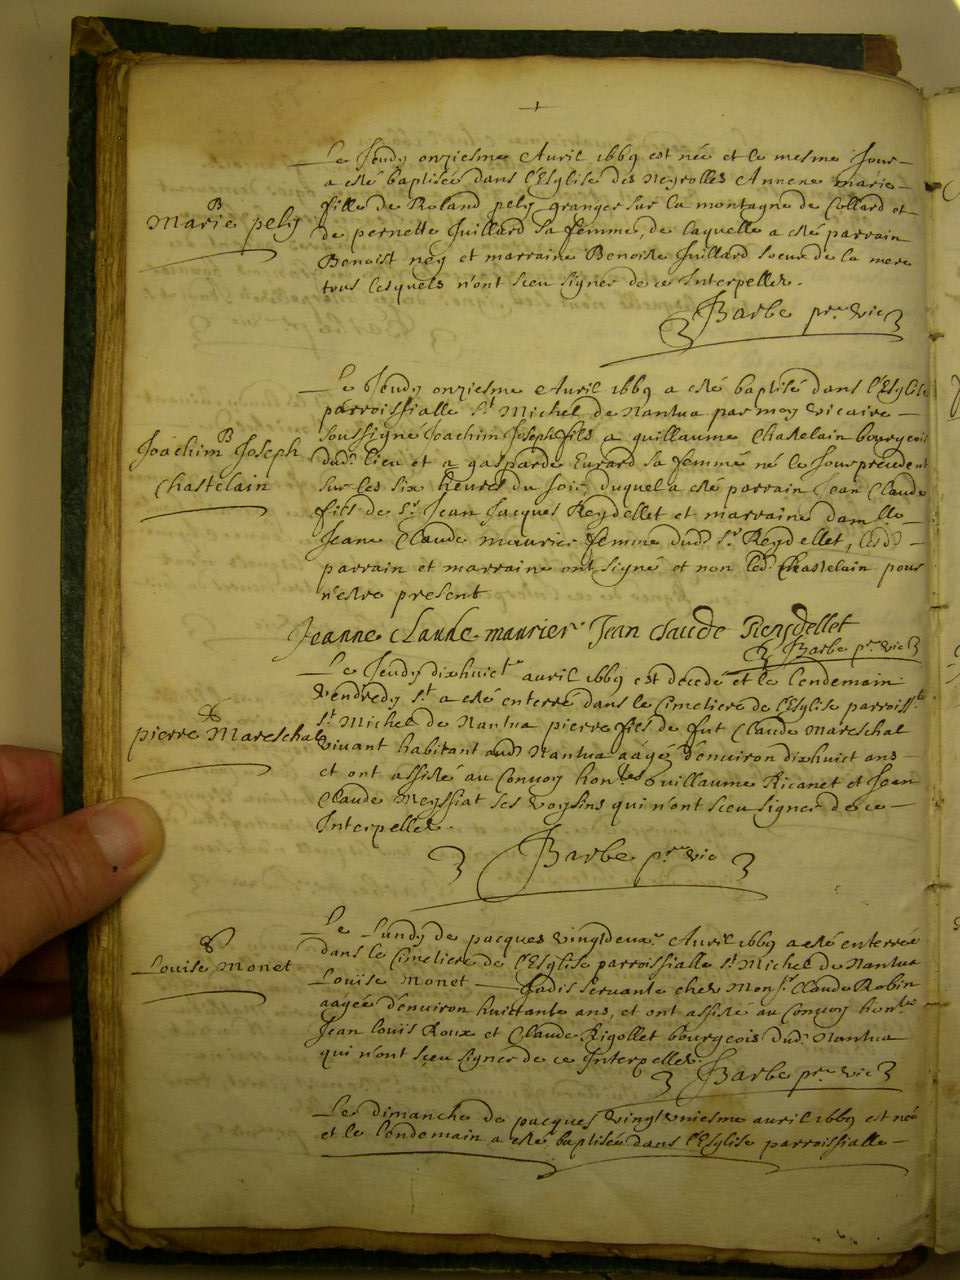 Le Jeudy onziesme Avril 1669 est née et le mesme Jour
a esté baptisée dans l'Esglise des Neyrolles Annene marie
B
Marie pely
fille de Roland pely granger sur la montagne de Collard et
de pernette Juillard sa femme, de laquelle a esté parrain
Benoist ney et marraine Benoiste Juillard soeur de la mere
tous lesquels n'ont sceu signer de ce Interpellez.
Barbe pre vic
Le Jeudy onziesme Avril 1669 a esté baptisé dans l'Esglise
parroissialle St Michel de Nantua par moy vicaire
B
Joachim Joseph
Chastelain
soussigné Joachim Joseph fils a guillaume Chastelain bourgeois
dudt lieu et a gasparde Eurard sa femme né le Jour precedent
sur les six heures du soir, duquel a esté parrain Jean Claude
fils de Sr Jean Jacques Reydellet et marraine damlle
Jeanne Claude maurier femme dudt Sr Reydellet, lesdt
parrain et marraine ont signé et non ledt Chastelain pour
n'estre present
Jeanne claude maurier Jean claude Reydellet
Barbe pr vic
Le Jeudy dixhuict avril 1669 est decedé et le lendemain
Vendredy St a esté enterré dans le Cimetiere de l'Esglise parroissle
pierre Mareschal
St Michel de Nantua pierre fils de fut Claude Mareschal
vivant habitant audt Nantua aagé d'environ dixhuict ans
et ont assisté au Convoy honles Guillaume Ricanet et Jean
Claude Meyssiat ses voysins qui n'ont sceu signer de ce
Interpellez.
Barbe pre vic
Le Lundy de pacques vingtdeux Avril 1669 a esté enterrée
dans le Cimetiere de l'Esglise parroissialle St Michel de Nantua
Louise Monet
Louïse Monet Jadis servante chez Monsr Claude Robin
aagée d'environ huictante ans, et ont assisté au Convoy honles
Jean louis Roux et Claude Rigollet bourgeois dudt Nantua
qui n'ont sceu signer de ce Interpellez.
Barbe pre vic
Le dimanche de pacques vingtuniesme avril 1669 est née
et le lendemain a esté baptisée dans l'Esglise parroissialle